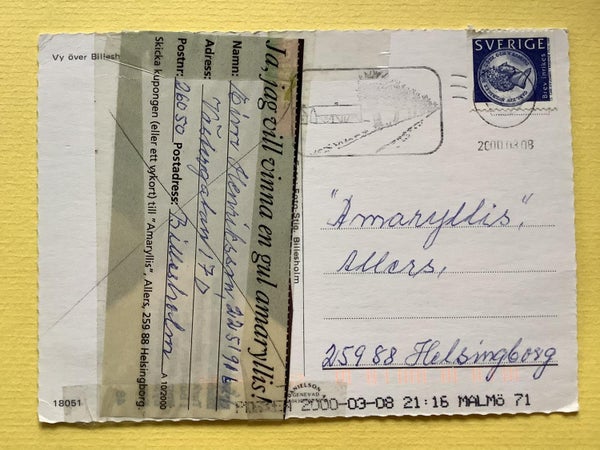 Vy över Billesholm
Ja, jag vill vinna en gul amaryllis!
Namn: Henriksson,
Adress: 17 D
Postnr: 26050 Postadress: Billesholm
Skicka kupongen (eller ett vykort) till "Amaryllis", Allers, 259 88 Helsingborg.
A 102000
Foto Stig, Billesholm
18051
SVERIGE
Brev inrikes
2000.03.08
"Amaryllis",
Allers,
25988 Helsingborg
DANIELSON
GENEVAD
2000-03-08 21:16 MALMÖ 71